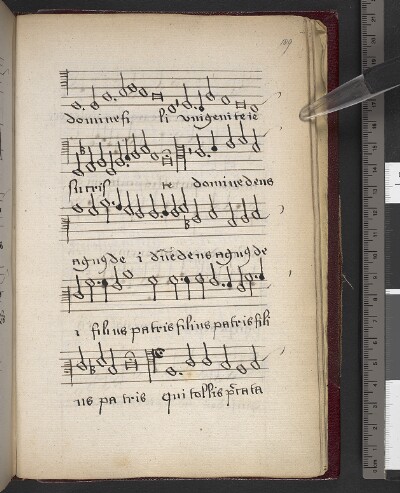 189
domine fi li vnigenite ie
su cris te domine deus
agnus de i dne deus agnus de
i filius patris filius patris fili
us pa tris Qui tollis pcata